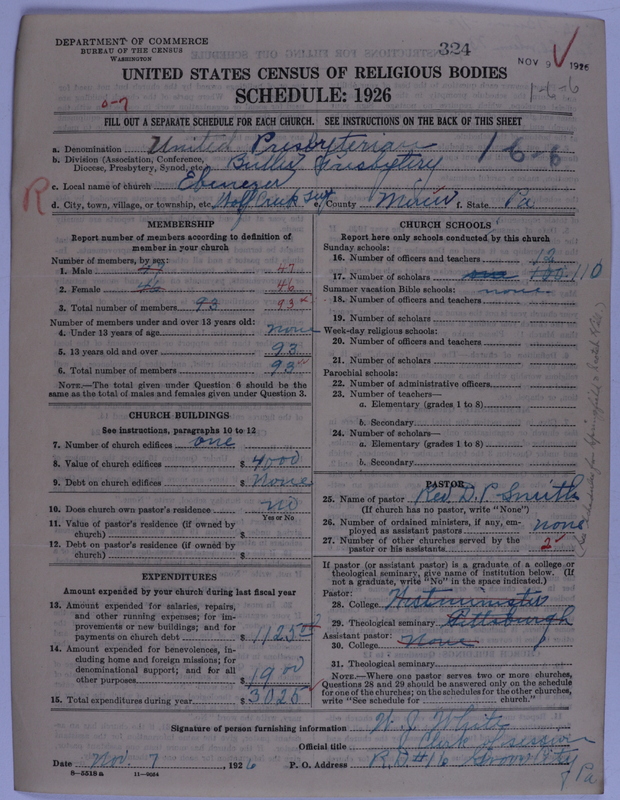 DEPARTMENT OF COMMERCE
BUREAU OF THE CENSUS
WASHINGTON
324
NOV 9 1926
1-6-6
UNITED STATES CENSUS OF RELIGIOUS BODIES
SCHEDULE: 1926
0-7
FILL OUT A SEPARATE SCHEDULE FOR EACH CHURCH. SEE INSTRUCTIONS ON THE BACK OF THIS SHEET
a. Denomination United Presbyterian 1 6-6
b. Division (Association, Conference, Diocese, Presbytery, Synod, etc.) Butler Presbytery
R
c. Local name of church Ebenezer
d. City, town, village, or township, etc. Wolf Creek Twp County Mercer f. State Pa
MEMBERSHIP
Report number of members according to definition of member in your church
Number of members, by sex:
1. Male 47 47
2. Female 46 46
3. Total number of members 93 93
Number of members under and over 13 years old:
4. Under 13 years of age none
5. 13 years old and over 93
6. Total number of members 93
NOTE.—The total given under Question 6 should be the same as the total of males and females given under Question 3.
CHURCH BUILDINGS
See instructions, paragraphs 10 to 12
7. Number of church edifices one
8. Value of church edifices $ 4000
9. Debt on church edifices $ None
10. Does church own pastor's residence no
Yes or No
11. Value of pastor's residence (if owned by church) $
12. Debt on pastor's residence (if owned by church) $
EXPENDITURES
Amount expended by your church during last fiscal year
13. Amount expended for salaries, repairs, and other running expenses; for improvements or new buildings; and for payments on church debt $ 1125
14. Amount expended for benevolences, including home and foreign missions; for denominational support; and for all other purposes $ 1900
15. Total expenditures during year $ 3025
CHURCH SCHOOLS
Report here only schools conducted by this church
Sunday schools:
16. Number of officers and teachers 12
17. Number of scholars 100 110
Summer vacation Bible schools: none
18. Number of officers and teachers
19. Number of scholars
Week-day religious schools:
20. Number of officers and teachers
21. Number of scholars
Parochial schools:
22. Number of administrative officers
23. Number of teachers—
a. Elementary (grades 1 to 8)
b. Secondary
24. Number of scholars—
a. Elementary (grades 1 to 8)
b. Secondary
PASTOR
25. Name of pastor Rev. D. P. Smith
(If church has no pastor, write "None")
26. Number of ordained ministers, if any, employed as assistant pastors none
27. Number of other churches served by the pastor or his assistants 2
If pastor (or assistant pastor) is a graduate of a college or theological seminary, give name of institution below. (If not a graduate, write "No" in the space indicated.)
Pastor:
28. College Westminster
29. Theological seminary Pittsburgh
Assistant pastor:
30. College None
31. Theological seminary
NOTE.—Where one pastor serves two or more churches, Questions 28 and 29 should be answered only on the schedule for one of the churches; on the schedules for the other churches, write "See schedule for church."
Signature of person furnishing information W. J. White
Official title Clerk Session
Date Nov. 7, 1926 P. O. Address R. D #16 Grove City Pa
8-5518a 11-9084